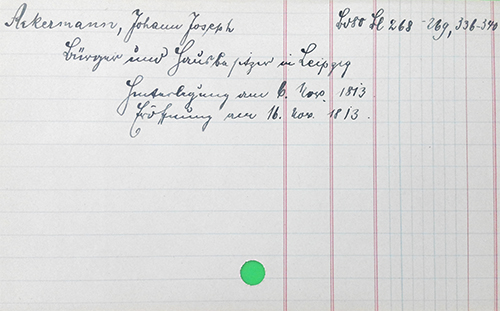 Ackermann, Johann Joseph Bd 80 Bl 268-269, 336-340
Bürger und Hausbesitzer in Leipzig
Hinterlegung am 6. Nov. 1813.
Eröffnung am 16. Nov. 1813.